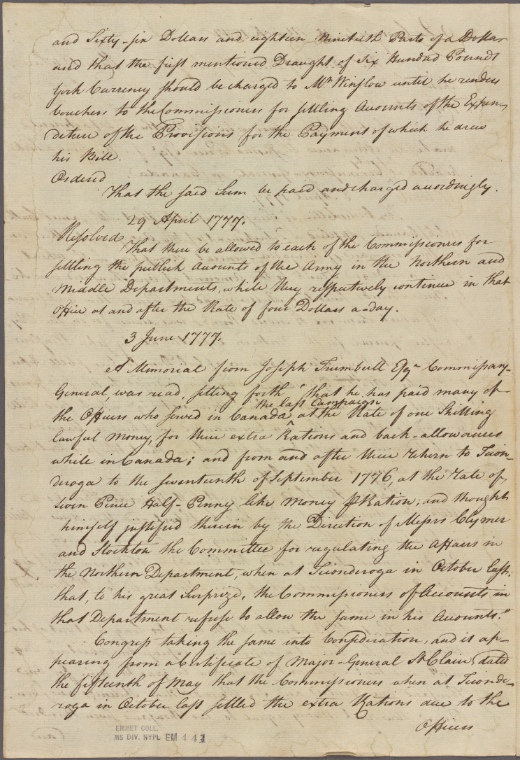 and Sixty-six Dollars and eighteen Ninetieth Parts of a Dollar
and that the first mentioned Draught of Six Hundred Pounds
York Currency should be charged to Mr Winslow until he renders
Vouchers to the Commissioners for settling Accounts of the Expen-
diture of the Provisions for the Payment of which he drew
his Bill
Ordered
That the said Sum be paid and charged accordingly.
29 April 1777.
Resolved
That there be allowed to each of the Commissioners for
settling the publick Accounts of the Army in the Northern and
Middle Departments, while they respectively continue in that
Office at and after the Rate of four Dollars a day.
3 June 1777.
A Memorial from Joseph Trumbull Esqr Commissary-
General, was read, setting forth "that he has paid many of
the last Campaign
the Officers who served in Canada at the Rate of one Shilling
lawful Money, for their extra Rations and back-allowances
while in Canada; and from and after their return to Ticon-
deroga to the seventeenth of September 1776, at the Rate of
seven Pence Half-Penny like Money Ration, and thought
himself justified therein by the Direction of Messrs Clymer
and Stockton the Committee for regulating the Affairs in
the Northern Department, when at Ticonderoga in October last,
that, to his great Surprize, the Commissioners of Accounts in
that Department refuse to allow the same in his Accounts."
Congress taking the same into Consideration, and it ap-
pearing from a Certificate of Major-General St Clair, dated
the fifteenth of May that the Commissioners when at Ticonde-
roga in October last settled the extra Rations due to the
Officers
EMMET COLL.
MS DIV. NYPL EM 443